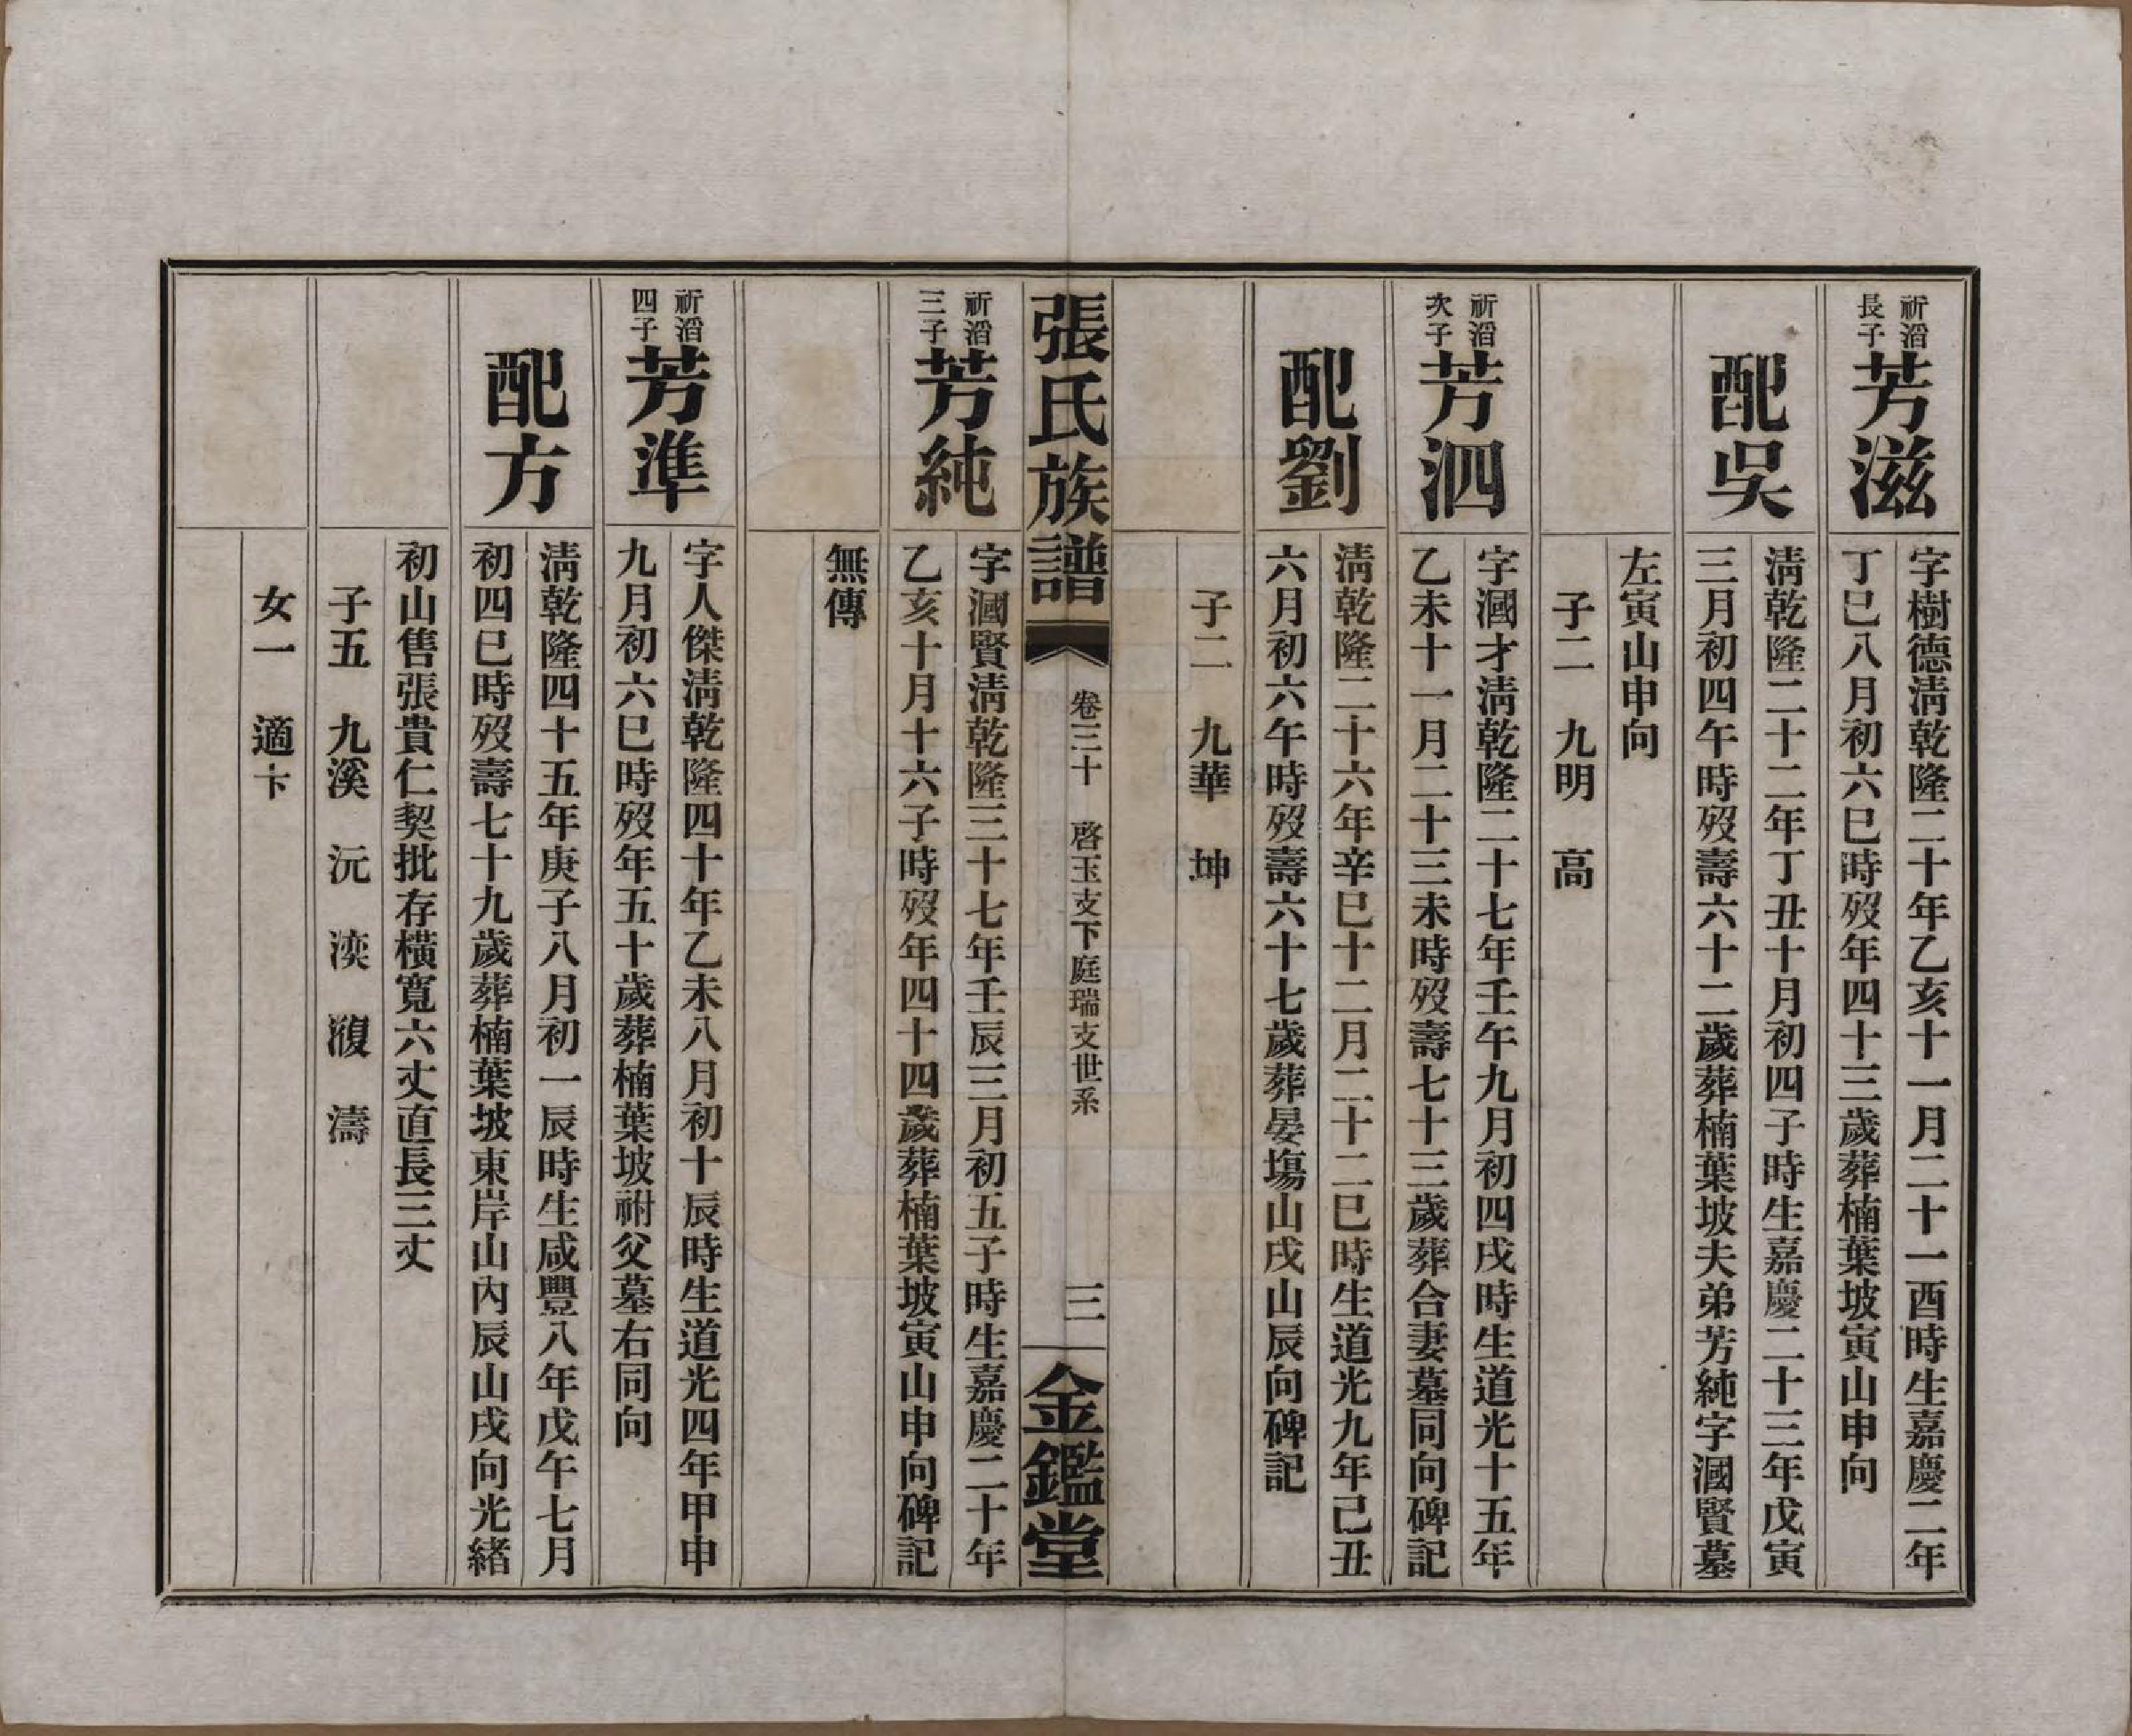 祈滔
長子
芳滋
字樹德淸乾隆二十年乙亥十一月二十一酉時生嘉慶二年
丁巳八月初六巳時歿年四十三歲葬楠葉坡寅山申向
配吳
淸乾隆二十二年丁丑十月初四子時生嘉慶二十三年戊寅
三月初四午時歿壽六十二歲葬楠葉坡夫弟芳純字漍賢墓
左寅山申向
子二　九明　高
祈滔
次子
芳泗
字漍才淸乾隆二十七年壬午九月初四戌時生道光十五年
乙未十一月二十三未時歿壽七十三歲葬合妻墓同向碑記
配劉
淸乾隆二十六年辛巳十二月二十二巳時生道光九年己丑
六月初六午時歿壽六十七歲葬晏塲山戌山辰向碑記
子二　九華　坤
張氏族譜
卷三十　啓玉支下庭瑞支世系
三
金鑑堂
祈滔
三子
芳純
字漍賢淸乾隆三十七年壬辰三月初五子時生嘉慶二十年
乙亥十月十六子時歿年四十四歲葬楠葉坡寅山申向碑記
無傳
祈滔
四子
芳準
字人傑淸乾隆四十年乙未八月初十辰時生道光四年甲申
九月初六巳時歿年五十歲葬楠葉坡祔父墓右同向
配方
淸乾隆四十五年庚子八月初一辰時生咸豐八年戊午七月
初四巳時歿壽七十九歲葬楠葉坡東岸山內辰山戌向光緖
初山售張貴仁契批存橫寬六丈直長三丈
子五　九溪　沅　湙　澓　濤
女一　適卞